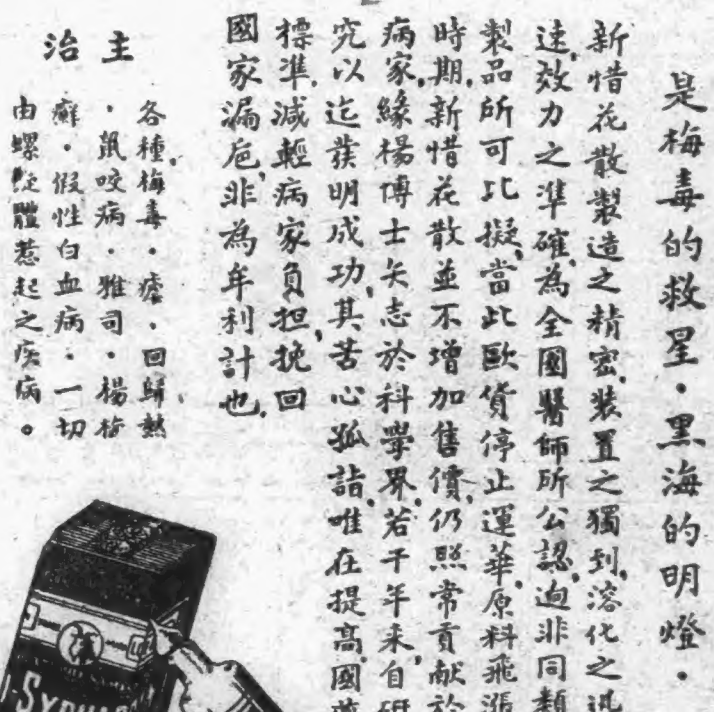 是梅毒的救星·黑海的明燈·
新惜花散製造之精密,裝置之獨到,溶化之迅
速,效力之準確,為全國醫師所公認,迥非同類
製品所可比擬,當此歐貨停止運華,原料飛漲
時期,新惜花散並不增加售價,仍照常貢献於
病家,緣楊博士矢志於科學界,若干年来,自研
究以迄發明成功,其苦心孤詣,唯在提高國藥
標準,減輕病家負担,挽回
國家漏巵,非為牟利計也,
主治
各種梅毒·瘧·回歸熱
·鼠咬病·雅司·楊梅
癬·假性白血病·一切
由螺旋體惹起之疾病。